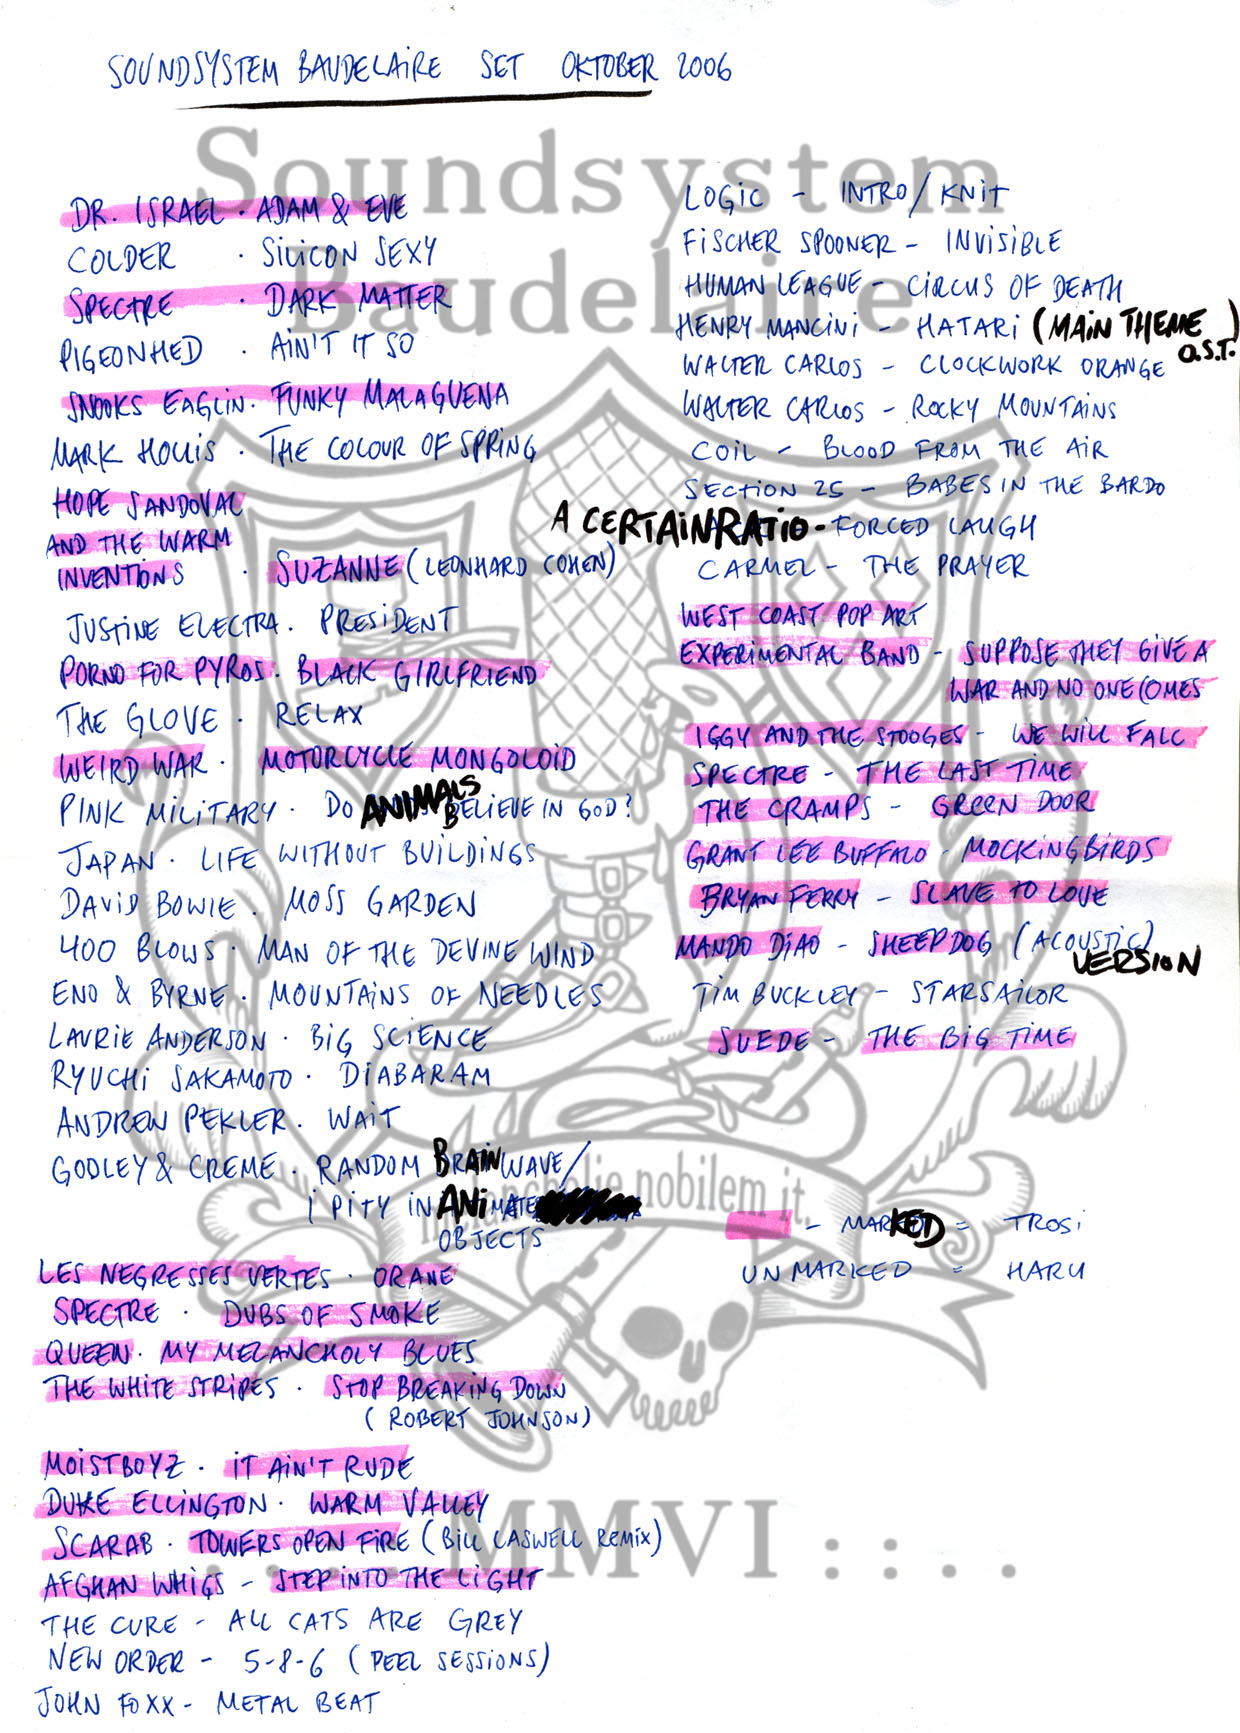 SOUNDSYSTEM BAUDELAIRE SET OKTOBER 2006
Soundsystem
Baudelaire
DR. ISRAEL · ADAM & EVE
COLDER · SILICON SEXY
SPECTRE · DARK MATTER
PIGEONHED · AIN'T IT SO
SNOOKS EAGLIN · FUNKY MALAGUENA
MARK HOLLIS · THE COLOUR OF SPRING
HOPE SANDOVAL
AND THE WARM
INVENTIONS · SUZANNE (LEONHARD COHEN)
JUSTINE ELECTRA · PRESIDENT
PORNO FOR PYROS · BLACK GIRLFRIEND
THE GLOVE · RELAX
WEIRD WAR · MOTORCYCLE MONGOLOID
PINK MILITARY · DO ANIMALS BELIEVE IN GOD?
JAPAN · LIFE WITHOUT BUILDINGS
DAVID BOWIE · MOSS GARDEN
400 BLOWS · MAN OF THE DEVINE WIND
ENO & BYRNE · MOUNTAINS OF NEEDLES
LAURIE ANDERSON · BIG SCIENCE
RYUCHI SAKAMOTO · DIABARAM
ANDREW PEKLER · WAIT
GODLEY & CREME · RANDOM BRAINWAVE/
I PITY INANIMATE
OBJECTS
LES NEGRESSES VERTES · ORANE
SPECTRE · DUBS OF SMOKE
QUEEN · MY MELANCHOLY BLUES
THE WHITE STRIPES · STOP BREAKING DOWN
(ROBERT JOHNSON)
MOISTBOYZ · IT AIN'T RUDE
DUKE ELLINGTON · WARM VALLEY
SCARAB · TOWERS OPEN FIRE (BILL LASWELL REMIX)
AFGHAN WHIGS - STEP INTO THE LIGHT
THE CURE - ALL CATS ARE GREY
NEW ORDER - 5-8-6 (PEEL SESSIONS)
JOHN FOXX - METAL BEAT
LOGIC - INTRO/KNIT
FISCHER SPOONER - INVISIBLE
HUMAN LEAGUE - CIRCUS OF DEATH
HENRY MANCINI - HATARI (MAIN THEME O.S.T.)
WALTER CARLOS - CLOCKWORK ORANGE
WALTER CARLOS - ROCKY MOUNTAINS
COIL - BLOOD FROM THE AIR
SECTION 25 - BABES IN THE BARDO
A CERTAIN RATIO - FORCED LAUGH
CARMEL - THE PRAYER
WEST COAST POP ART
EXPERIMENTAL BAND - SUPPOSE THEY GIVE A
WAR AND NO ONE COMES
IGGY AND THE STOOGES - WE WILL FALL
SPECTRE - THE LAST TIME
THE CRAMPS - GREEN DOOR
GRANT LEE BUFFALO - MOCKINGBIRDS
BRYAN FERRY - SLAVE TO LOVE
MANDO DIAO - SHEEPDOG (ACOUSTIC)
VERSION
TIM BUCKLEY - STARSAILOR
SUEDE - THE BIG TIME
nobilem it.
- MARKED = TROSI
UNMARKED = HARU
MMVI : : . .